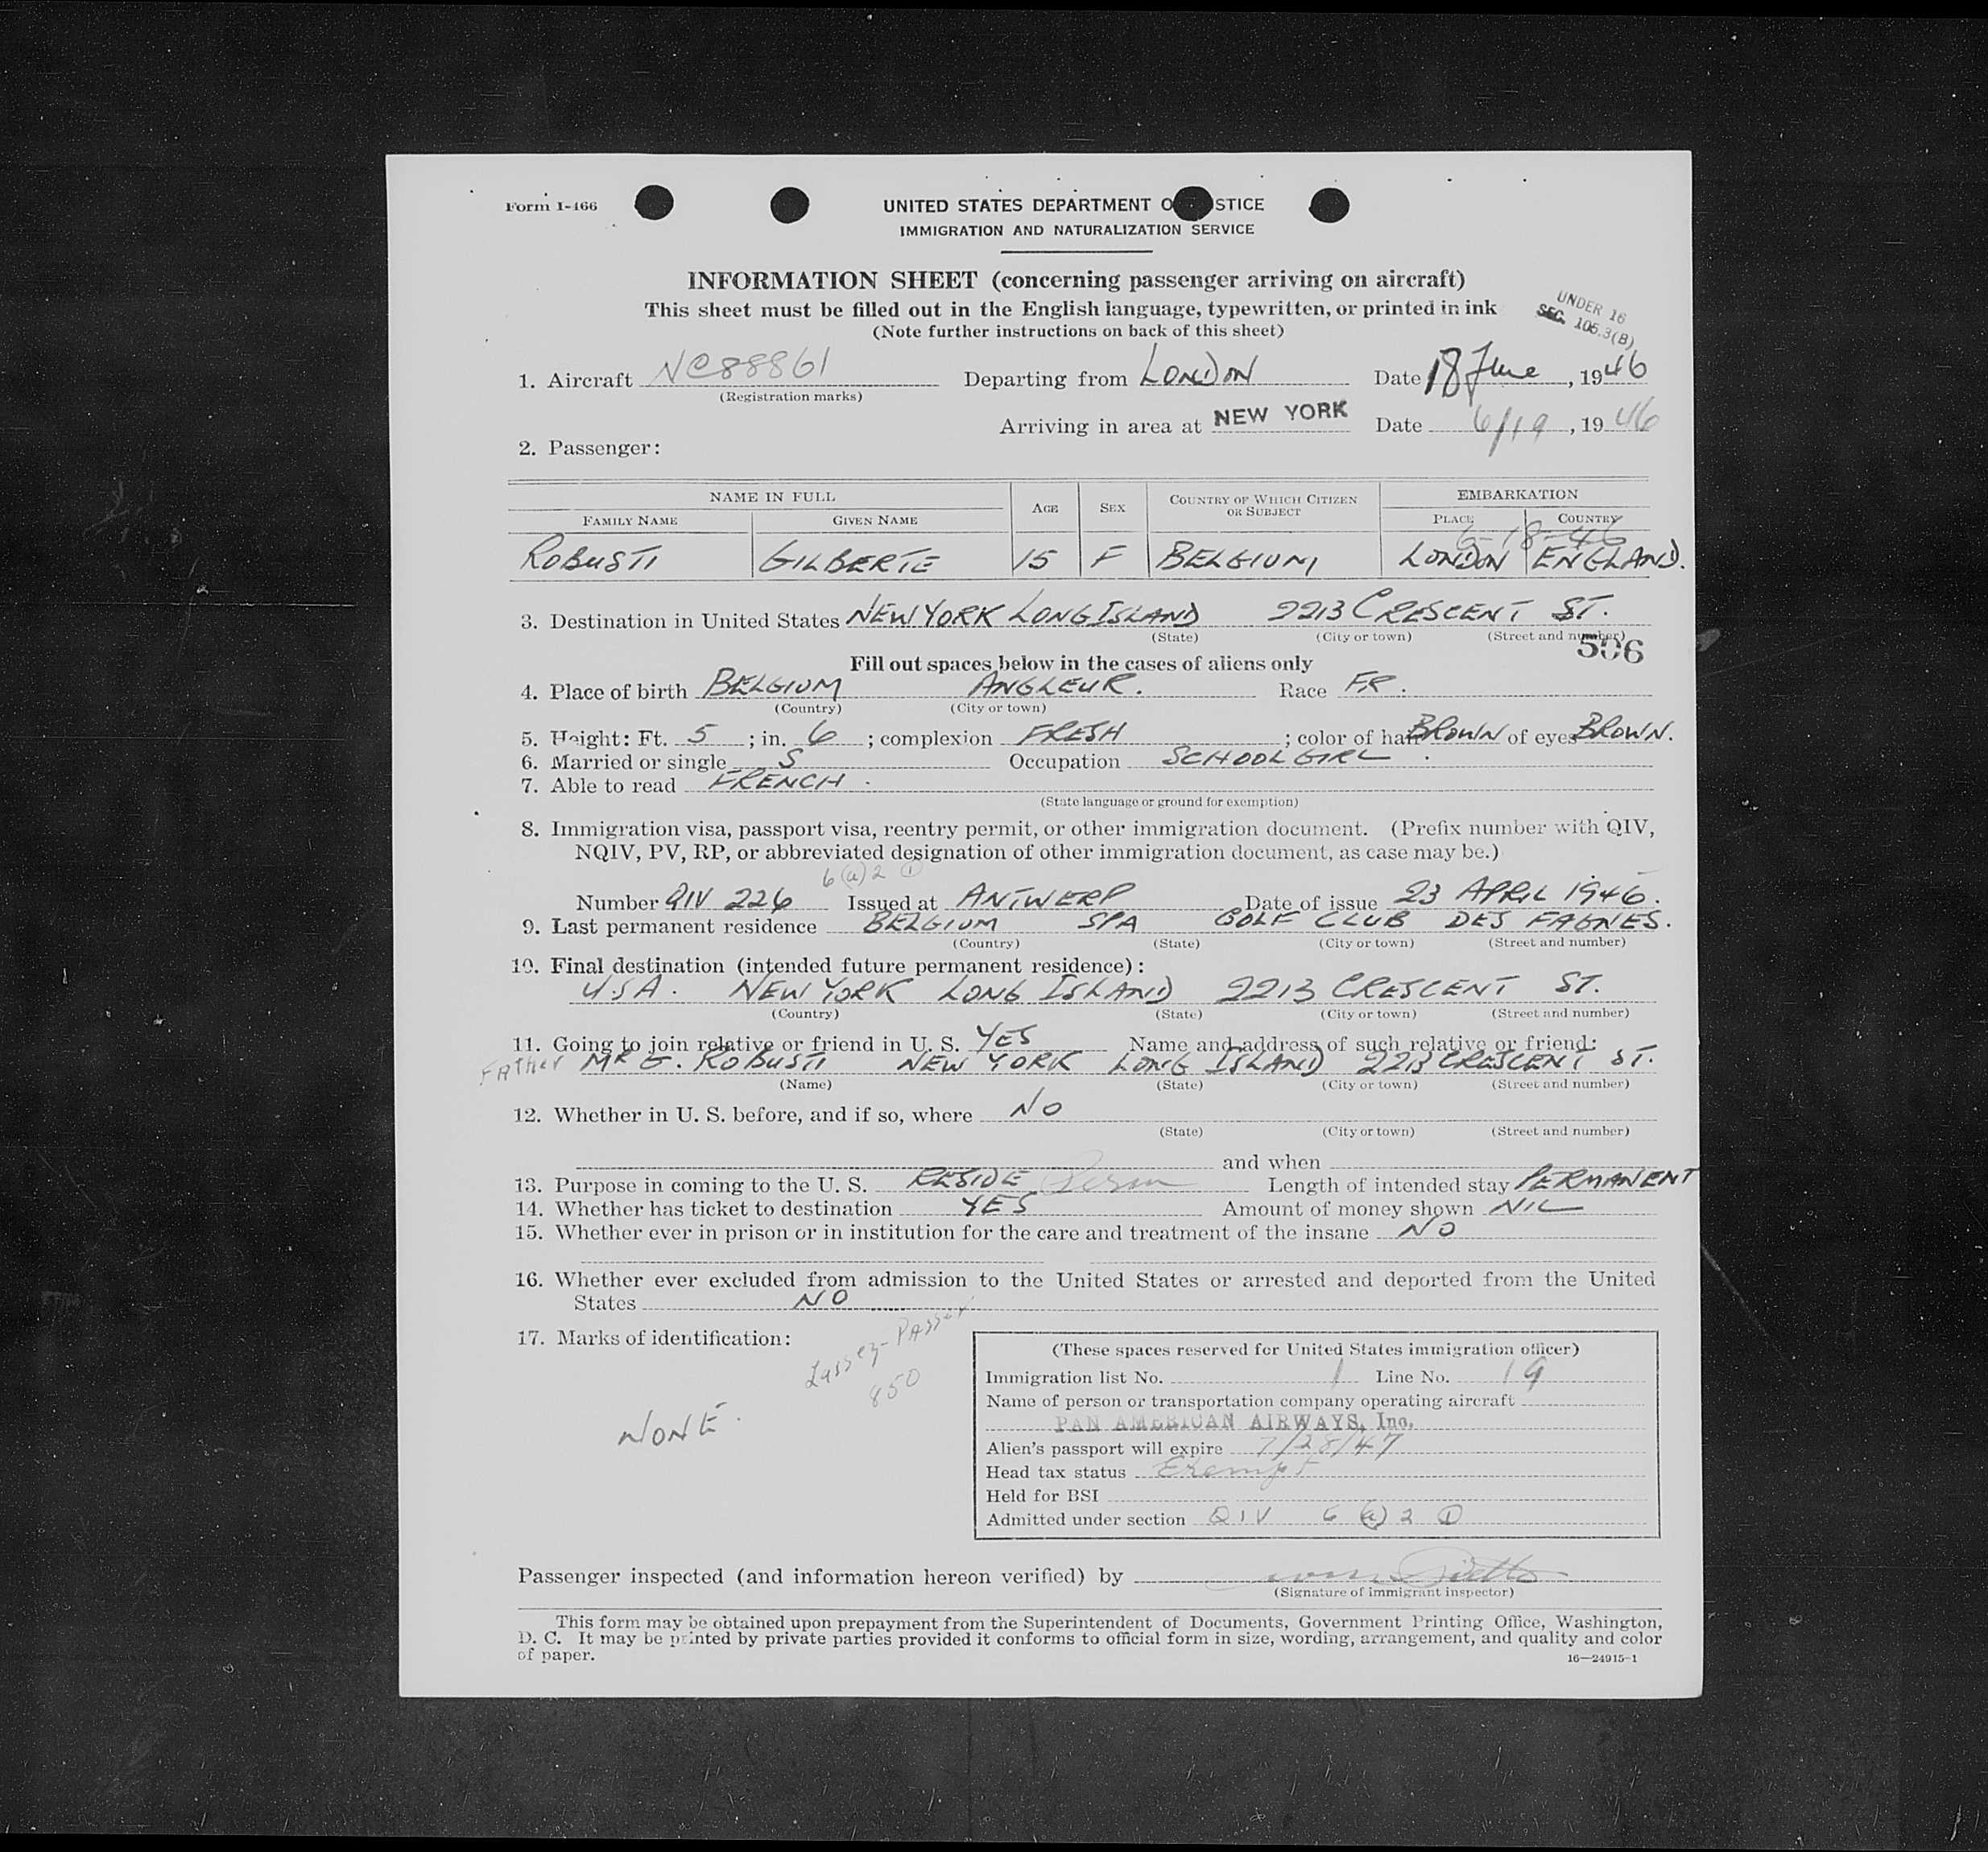 Form I-466
UNITED STATES DEPARTMENT O STICE
IMMIGRATION AND NATURALIZATION SERVICE
INFORMATION SHEET (concerning passenger arriving on aircraft)
This sheet must be filled out in the English language, typewritten, or printed in ink
(Note further instructions on back of this sheet)
UNDER 16
SEC. 105.3(B)
1. Aircraft NC88861 Departing from LONDON Date 18 June, 1946
(Registration marks)
Arriving in area at NEW YORK Date 6/19, 1946
2. Passenger:
NAME IN FULL AGE SEX COUNTRY OF WHICH CITIZEN OR SUBJECT EMBARKATION
FAMILY NAME GIVEN NAME PLACE COUNTRY
6-18-46
ROBUSTI GILBERTE 15 F BELGIUM LONDON ENGLAND.
3. Destination in United States NEW YORK LONG ISLAND 2213 CRESCENT ST.
(State) (City or town) (Street and number)
506
Fill out spaces below in the cases of aliens only
4. Place of birth BELGIUM ANGLEUR. Race FR.
(Country) (City or town)
5. Height: Ft. 5; in. 6; complexion FRESH; color of hair BROWN of eyes BROWN.
6. Married or single S Occupation SCHOOL GIRL.
7. Able to read FRENCH.
(State language or ground for exemption)
8. Immigration visa, passport visa, reentry permit, or other immigration document. (Prefix number with QIV,
NQIV, PV, RP, or abbreviated designation of other immigration document, as case may be.)
6(a)2 1
Number QIV 226 Issued at ANTWERP Date of issue 23 APRIL 1946.
9. Last permanent residence BELGIUM SPA GOLF CLUB DES FAGNES.
(Country) (State) (City or town) (Street and number)
10. Final destination (intended future permanent residence):
U.S.A. NEW YORK LONG ISLAND 2213 CRESCENT ST.
(Country) (State) (City or town) (Street and number)
11. Going to join relative or friend in U. S. YES Name and address of such relative or friend:
Father MR G. ROBUSTI NEW YORK LONG ISLAND 2213 CRESCENT ST.
(Name) (State) (City or town) (Street and number)
12. Whether in U. S. before, and if so, where NO
(State) (City or town) (Street and number)
and when
13. Purpose in coming to the U. S. RESIDE Perm Length of intended stay PERMANENT
14. Whether has ticket to destination YES Amount of money shown NIL
15. Whether ever in prison or in institution for the care and treatment of the insane NO
16. Whether ever excluded from admission to the United States or arrested and deported from the United
States NO
17. Marks of identification:
Lassez-Passer
850
NONE.
(These spaces reserved for United States immigration officer)
Immigration list No. 1 Line No. 19
Name of person or transportation company operating aircraft
PAN AMERICAN AIRWAYS, Inc.
Alien's passport will expire 7/28/47
Head tax status Exempt
Held for BSI
Admitted under section QIV 6(a)2 1
Passenger inspected (and information hereon verified) by
(Signature of immigrant inspector)
This form may be obtained upon prepayment from the Superintendent of Documents, Government Printing Office, Washington,
D. C. It may be printed by private parties provided it conforms to official form in size, wording, arrangement, and quality and color
of paper.
16—24915-1